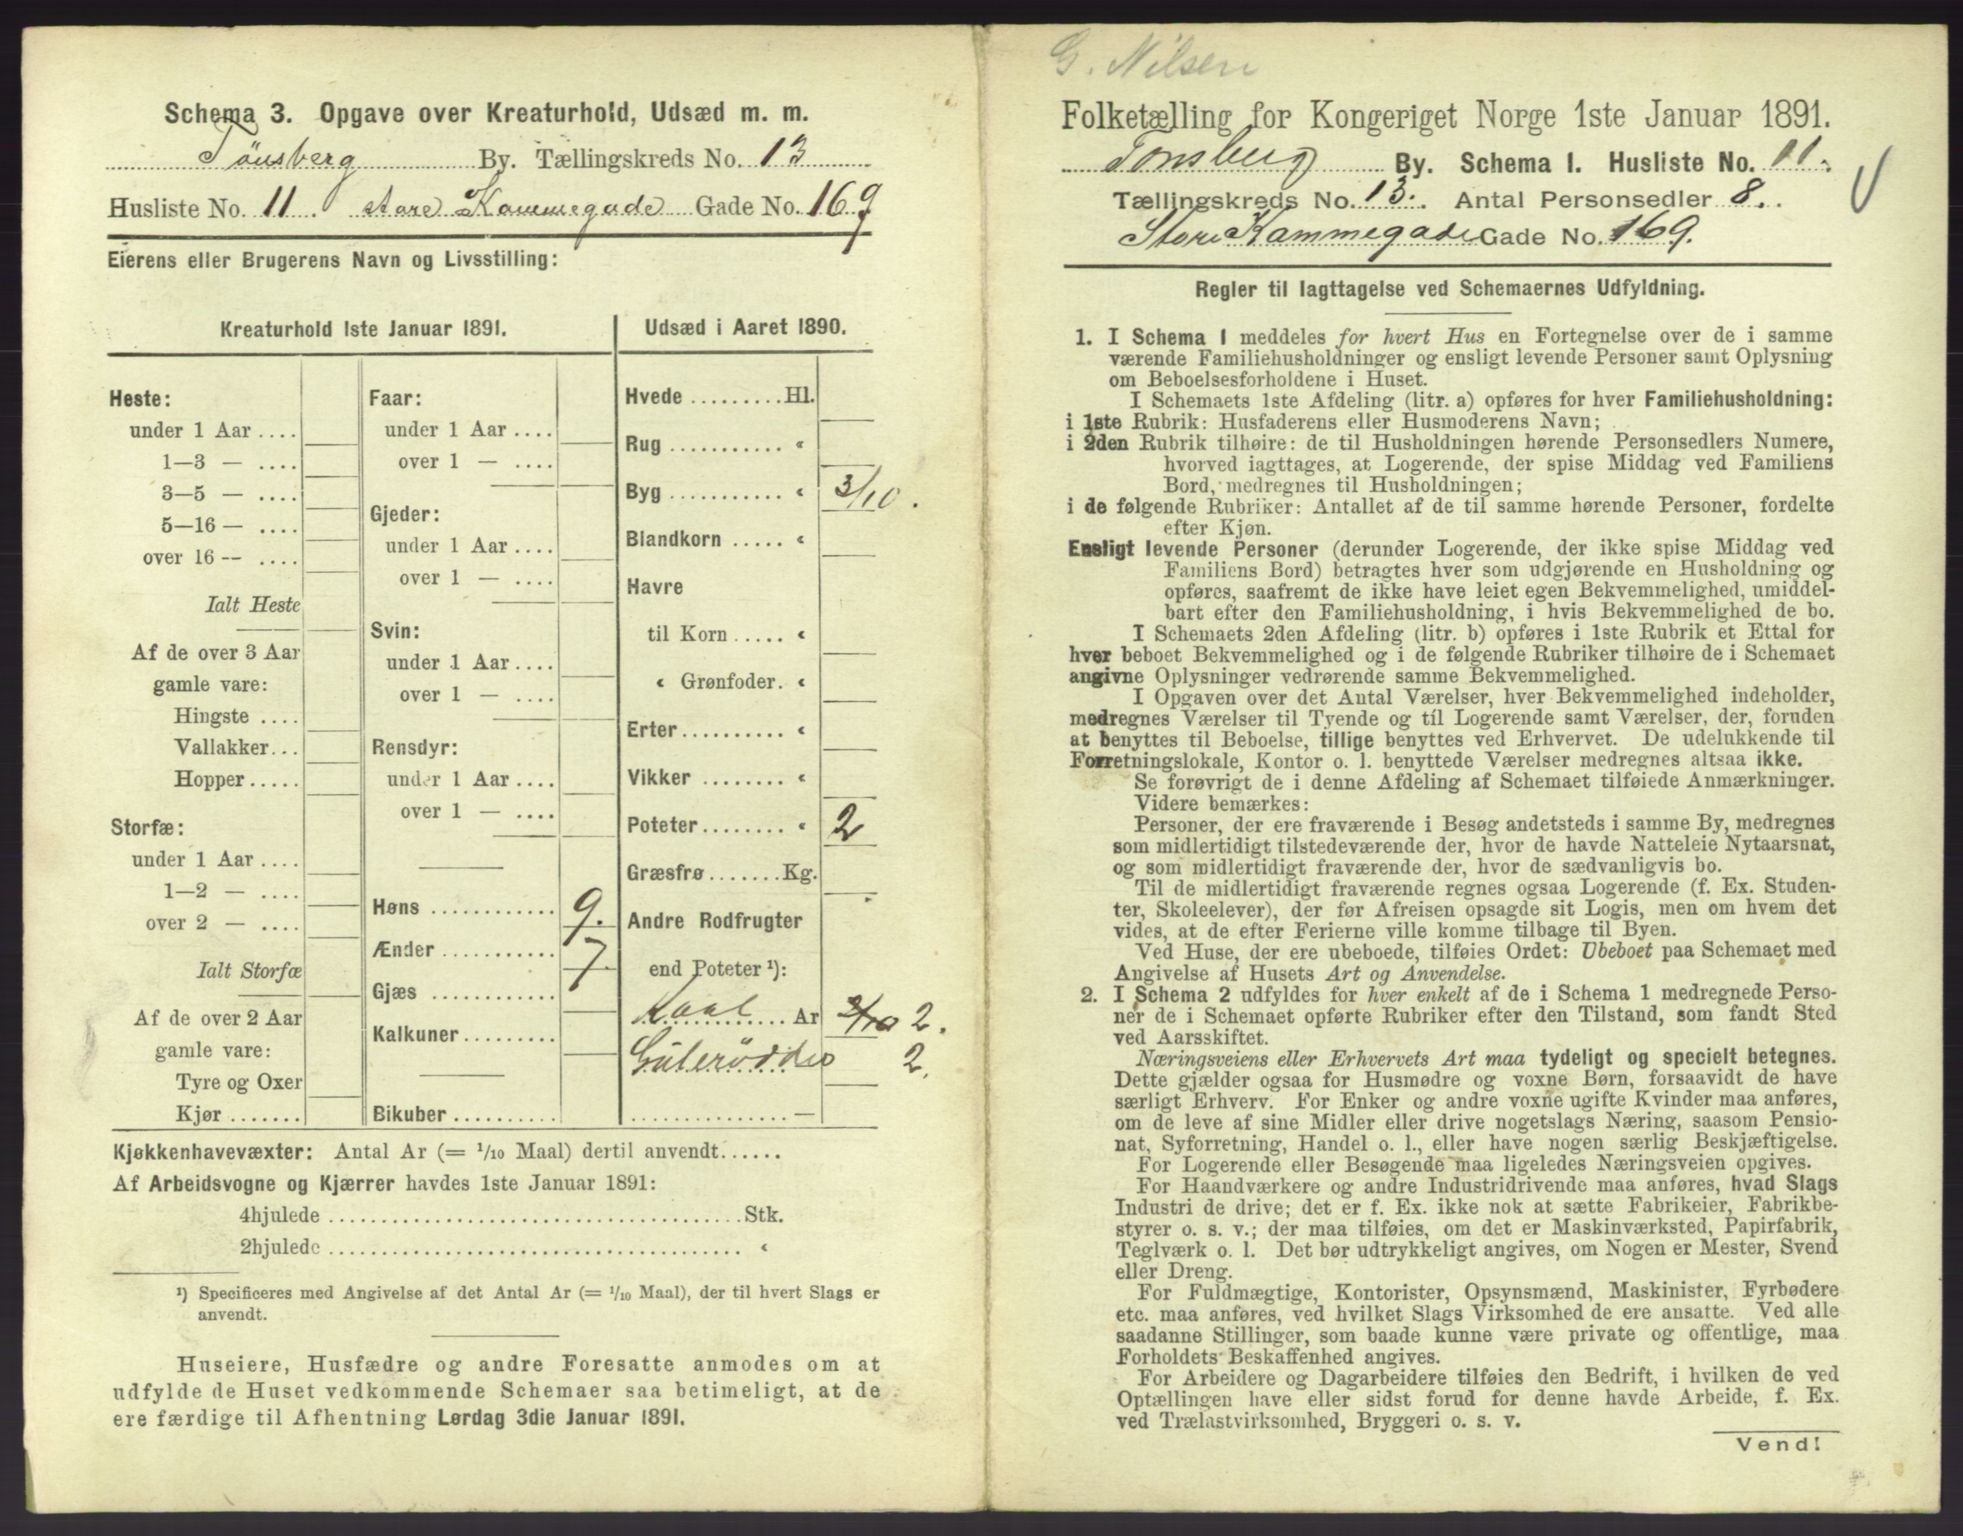 Schema 3. Opgave over Kreaturhold, Udsæd m. m.
Tönsberg By. Tællingskreds No. 13
Husliste No. 11. store Kammegade Gade No. 169
Eierens eller Brugerens Navn og Livsstilling:
Kreaturhold 1ste Januar 1891.
Heste:
under 1 Aar ....
1—3 — ....
3—5 — ....
5—16 — ....
over 16 -- ....
Ialt Heste
Af de over 3 Aar
gamle vare:
Hingste ....
Vallakker...
Hopper.....
Storfæ:
under 1 Aar ....
1—2 — ....
over 2 — ....
Ialt Storfæ
Af de over 2 Aar
gamle vare:
Tyre og Oxer
Kjør.......
Faar:
under 1 Aar ....
over 1 — ....
Gjeder:
under 1 Aar ....
over 1 — ....
Svin:
under 1 Aar ....
over 1 — ....
Rensdyr:
under 1 Aar ....
over 1 — ....
Høns ............ 9.
Ænder ........... 7
Gjæs ............
Kalkuner.........
Bikuber..........
Udsæd i Aaret 1890.
Hvede .........Hl.
Rug ........... «
Byg ........... « 3/10.
Blandkorn ..... «
Havre
til Korn ..... «
« Grønfoder. «
Erter.......... «
Vikker ........ «
Poteter........ « 2
Græsfrø.......Kg.
Andre Rodfrugter
end Poteter ¹):
Kaal ... Ar 2/10 2.
Gulerödder 2.
................ —
Kjøkkenhavevæxter: Antal Ar (= 1/10 Maal) dertil anvendt......
Af Arbeidsvogne og Kjærrer havdes 1ste Januar 1891:
4hjulede ........................................Stk.
2hjulede ........................................ «
¹) Specificeres med Angivelse af det Antal Ar (= 1/10 Maal), der til hvert Slags er
anvendt.
Huseiere, Husfædre og andre Foresatte anmodes om at
udfylde de Huset vedkommende Schemaer saa betimeligt, at de
ere færdige til Afhentning Lørdag 3die Januar 1891.
G. Nilsen
Folketælling for Kongeriget Norge 1ste Januar 1891.
Tonsberg By. Schema I. Husliste No. 11.
Tællingskreds No. 13. Antal Personsedler 8.
Store Kammegade Gade No. 169.
Regler til Iagttagelse ved Schemaernes Udfyldning.
1. I Schema I meddeles for hvert Hus en Fortegnelse over de i samme
værende Familiehusholdninger og ensligt levende Personer samt Oplysning
om Beboelsesforholdene i Huset.
I Schemaets 1ste Afdeling (litr. a) opføres for hver Familiehusholdning:
i 1ste Rubrik: Husfaderens eller Husmoderens Navn;
i 2den Rubrik tilhøire: de til Husholdningen hørende Personsedlers Numere,
hvorved iagttages, at Logerende, der spise Middag ved Familiens
Bord, medregnes til Husholdningen;
i de følgende Rubriker: Antallet af de til samme hørende Personer, fordelte
efter Kjøn.
Ensligt levende Personer (derunder Logerende, der ikke spise Middag ved
Familiens Bord) betragtes hver som udgjørende en Husholdning og
opføres, saafremt de ikke have leiet egen Bekvemmelighed, umiddel-
bart efter den Familiehusholdning, i hvis Bekvemmelighed de bo.
I Schemaets 2den Afdeling (litr. b) opføres i 1ste Rubrik et Ettal for
hver beboet Bekvemmelighed og i de følgende Rubriker tilhøire de i Schemaet
angivne Oplysninger vedrørende samme Bekvemmelighed.
I Opgaven over det Antal Værelser, hver Bekvemmelighed indeholder,
medregnes Værelser til Tyende og til Logerende samt Værelser, der, foruden
at benyttes til Beboelse, tillige benyttes ved Erhvervet. De udelukkende til
Forretningslokale, Kontor o. l. benyttede Værelser medregnes altsaa ikke.
Se forøvrigt de i denne Afdeling af Schemaet tilføiede Anmærkninger.
Videre bemærkes:
Personer, der ere fraværende i Besøg andetsteds i samme By, medregnes
som midlertidigt tilstedeværende der, hvor de havde Natteleie Nytaarsnat,
og som midlertidigt fraværende der, hvor de sædvanligvis bo.
Til de midlertidigt fraværende regnes ogsaa Logerende (f. Ex. Studen-
ter, Skoleelever), der før Afreisen opsagde sit Logis, men om hvem det
vides, at de efter Ferierne ville komme tilbage til Byen.
Ved Huse, der ere ubeboede, tilføies Ordet: Ubeboet paa Schemaet med
Angivelse af Husets Art og Anvendelse.
2. I Schema 2 udfyldes for hver enkelt af de i Schema 1 medregnede Perso-
ner de i Schemaet opførte Rubriker efter den Tilstand, som fandt Sted
ved Aarsskiftet.
Næringsveiens eller Erhvervets Art maa tydeligt og specielt betegnes.
Dette gjælder ogsaa for Husmødre og voxne Børn, forsaavidt de have
særligt Erhverv. For Enker og andre voxne ugifte Kvinder maa anføres,
om de leve af sine Midler eller drive nogetslags Næring, saasom Pensio-
nat, Syforretning, Handel o. l., eller have nogen særlig Beskjæftigelse.
For Logerende eller Besøgende maa ligeledes Næringsveien opgives.
For Haandværkere og andre Industridrivende maa anføres, hvad Slags
Industri de drive; det er f. Ex. ikke nok at sætte Fabrikeier, Fabrikbe-
styrer o. s. v.; der maa tilføies, om det er Maskinværksted, Papirfabrik,
Teglværk o. l. Det bør udtrykkeligt angives, om Nogen er Mester, Svend
eller Dreng.
For Fuldmægtige, Kontorister, Opsynsmænd, Maskinister, Fyrbødere
etc. maa anføres, ved hvilket Slags Virksomhed de ere ansatte. Ved alle
saadanne Stillinger, som baade kunne være private og offentlige, maa
Forholdets Beskaffenhed angives.
For Arbeidere og Dagarbeidere tilføies den Bedrift, i hvilken de ved
Optællingen have eller sidst forud for denne havde Arbeide, f. Ex.
ved Trælastvirksomhed, Bryggeri o. s. v.
Vend!